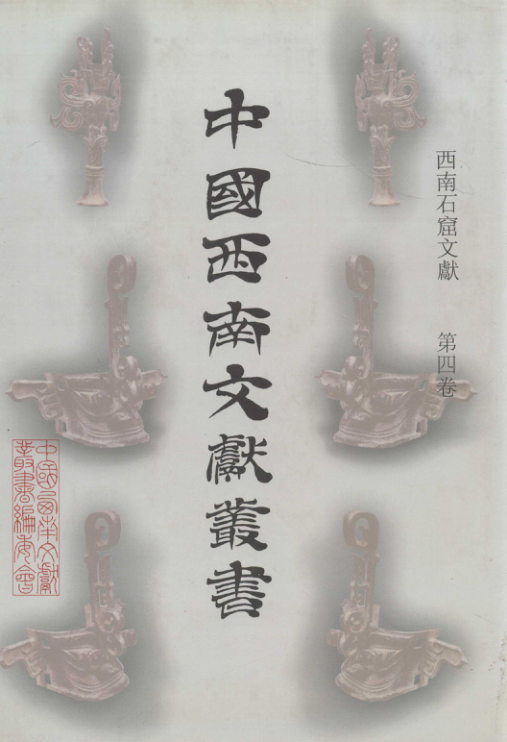 西南石窟文獻 第四卷
中國西南文獻叢書
中國西南文獻
叢書編委會